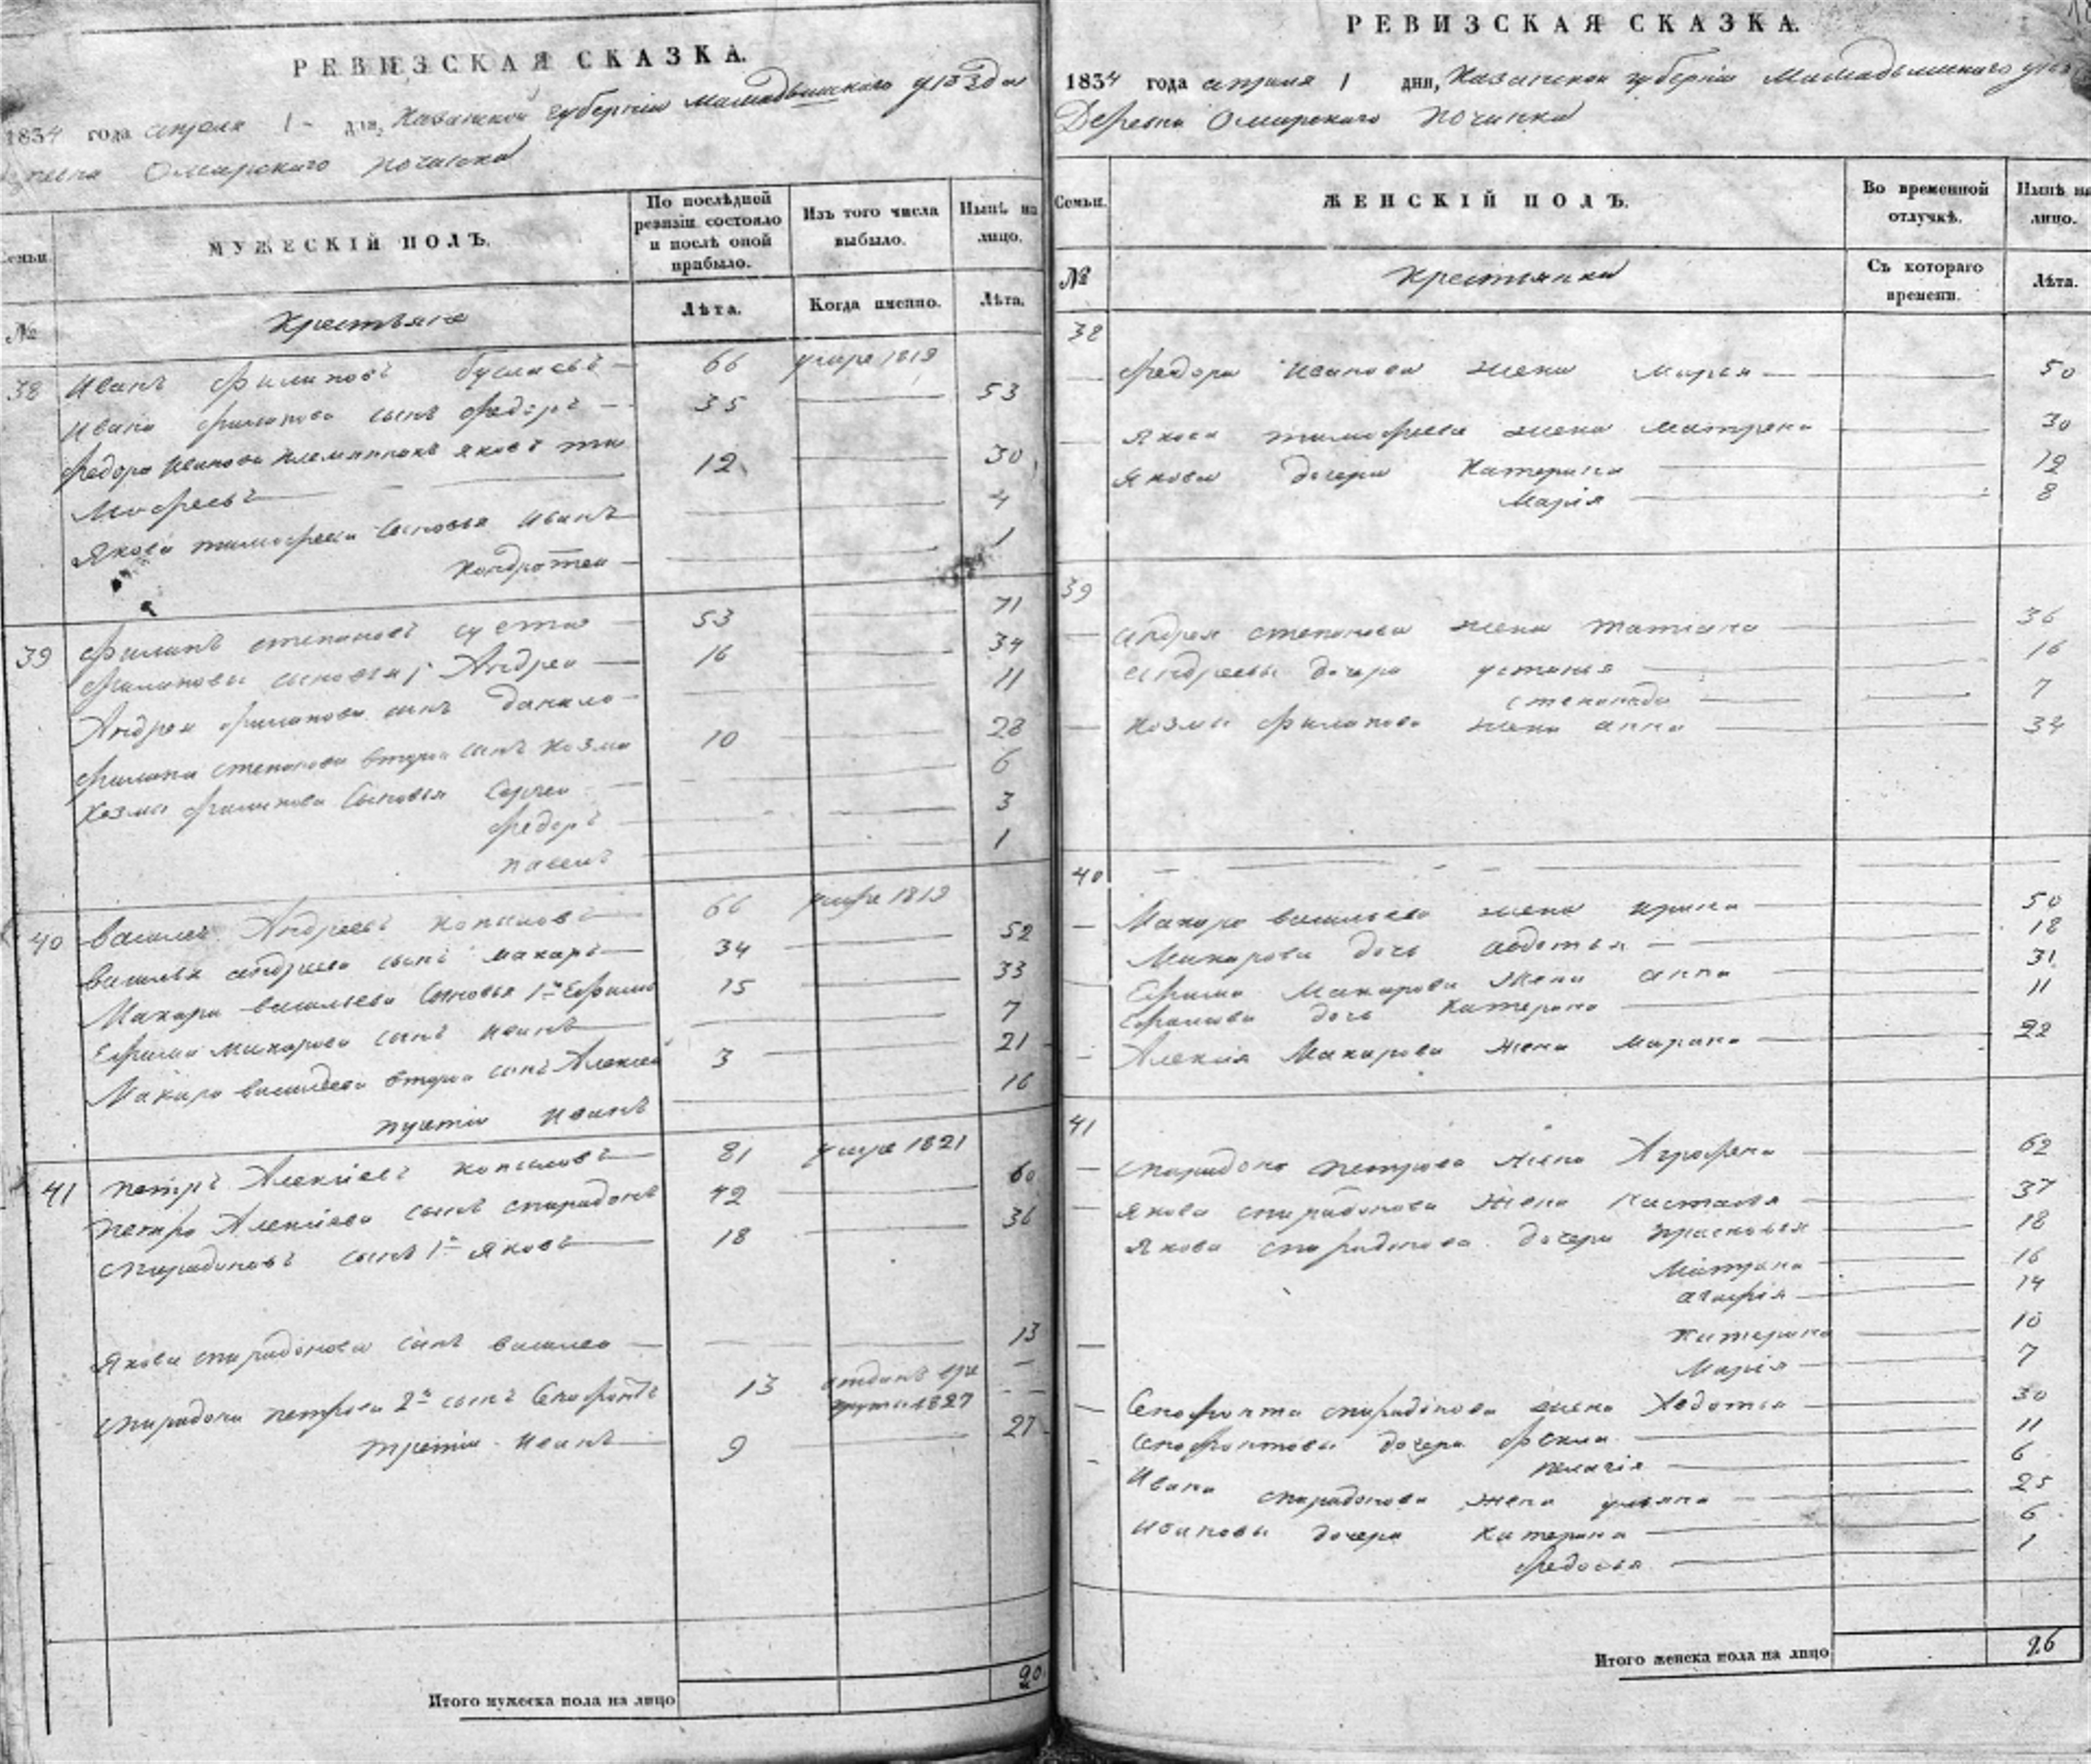 РЕВИЗСКАЯ СКАЗКА.
1834 года апреля 1 дня, Казанской губернии Мамадышского уезда
Омарского починка
Семьи.
МУЖЕСКІЙ ПОЛЪ.
По послѣдней ревизіи состояло и послѣ оной прибыло.
Изъ того числа выбыло.
Нынѣ на лицо.
№
Крестьяне
Лѣта.
Когда именно.
Лѣта.
38 Иванъ Филиповъ 66 умре 1819
Ивана Филипова сынъ Федоръ 35 53
Федора Иванова племянникъ Яковъ Ти 12 30
мофеевъ
Якова Тимофеева сыновья Иванъ 4
Кондротеи 1
39 Филипъ Степановъ 53 71
Филиповы сыновья Андреи 16 34
Андрея Филипова сынъ Данило 11
Филипа Степанова второи сынъ Козма 10 28
Козмы Филипова сыновья Сергеи 6
Федоръ 3
Павелъ 1
40 Василеи Андреевъ Копыловъ 66 умре 1819
Василья Андреева сынъ Макаръ 34 52
Макара Васильева сыновья 1й Ефимъ 15 33
Ефима Макарова сынъ Иванъ 7
Макара Васильева второи сынъ Алексеи 3 21
Иванъ 16
41 Петръ Алексіевъ Копыловъ 81 умре 1821
Петра Алексіева сынъ Спиридонъ 42 60
Спиридоновъ сынъ 1й Яковъ 18 36
Якова Спиридонова сынъ Василеи 13
Спиридона Петрова 2й сынъ Сенофонтъ 13 отданъ вре
круты 1827
третіи Иванъ 9 27
Итого мужеска пола на лицо 20
РЕВИЗСКАЯ СКАЗКА.
1834 года апреля 1 дня, Казанской губерніи Мамадышского уез
Деревни Омарскаго Починка
Семьи.
ЖЕНСКІЙ ПОЛЪ.
Во временной отлучкѣ.
Нынѣ на лицо.
№
Крестьянки
Съ котораго времени.
Лѣта.
38
Федора Иванова жена Марья 50
Якова Тимофеева жена Матрена 30
Якова дочери Катерина 12
Марія 8
39
Андрея Степанова жена Татіана 36
Андреевы дочери Устинья 16
Степанида 7
Козмы Филипова жена Анна 34
40
Макара Васильева жена Ирина 50
Макарова дочь Авдотья 18
Ефима Макарова жена Анна 31
Ефимова дочь Катерина 11
Алексія Макарова жена Марина 22
41
Спиридона Петрова жена Аграфена 62
Якова Спиридонова жена Настасья 37
Якова Спиридонова дочери Прасковья 18
Матрена 16
Агафія 14
Катерина 10
Марія 7
Сенофонта Спиридонова жена Авдотья 30
Сенофонтовы дочери Фекла 11
Пелагія 6
Ивана Спиридонова жена Ульяна 25
Ивановы дочери Катерина 6
Федосья 1
Итого женска пола на лицо 26